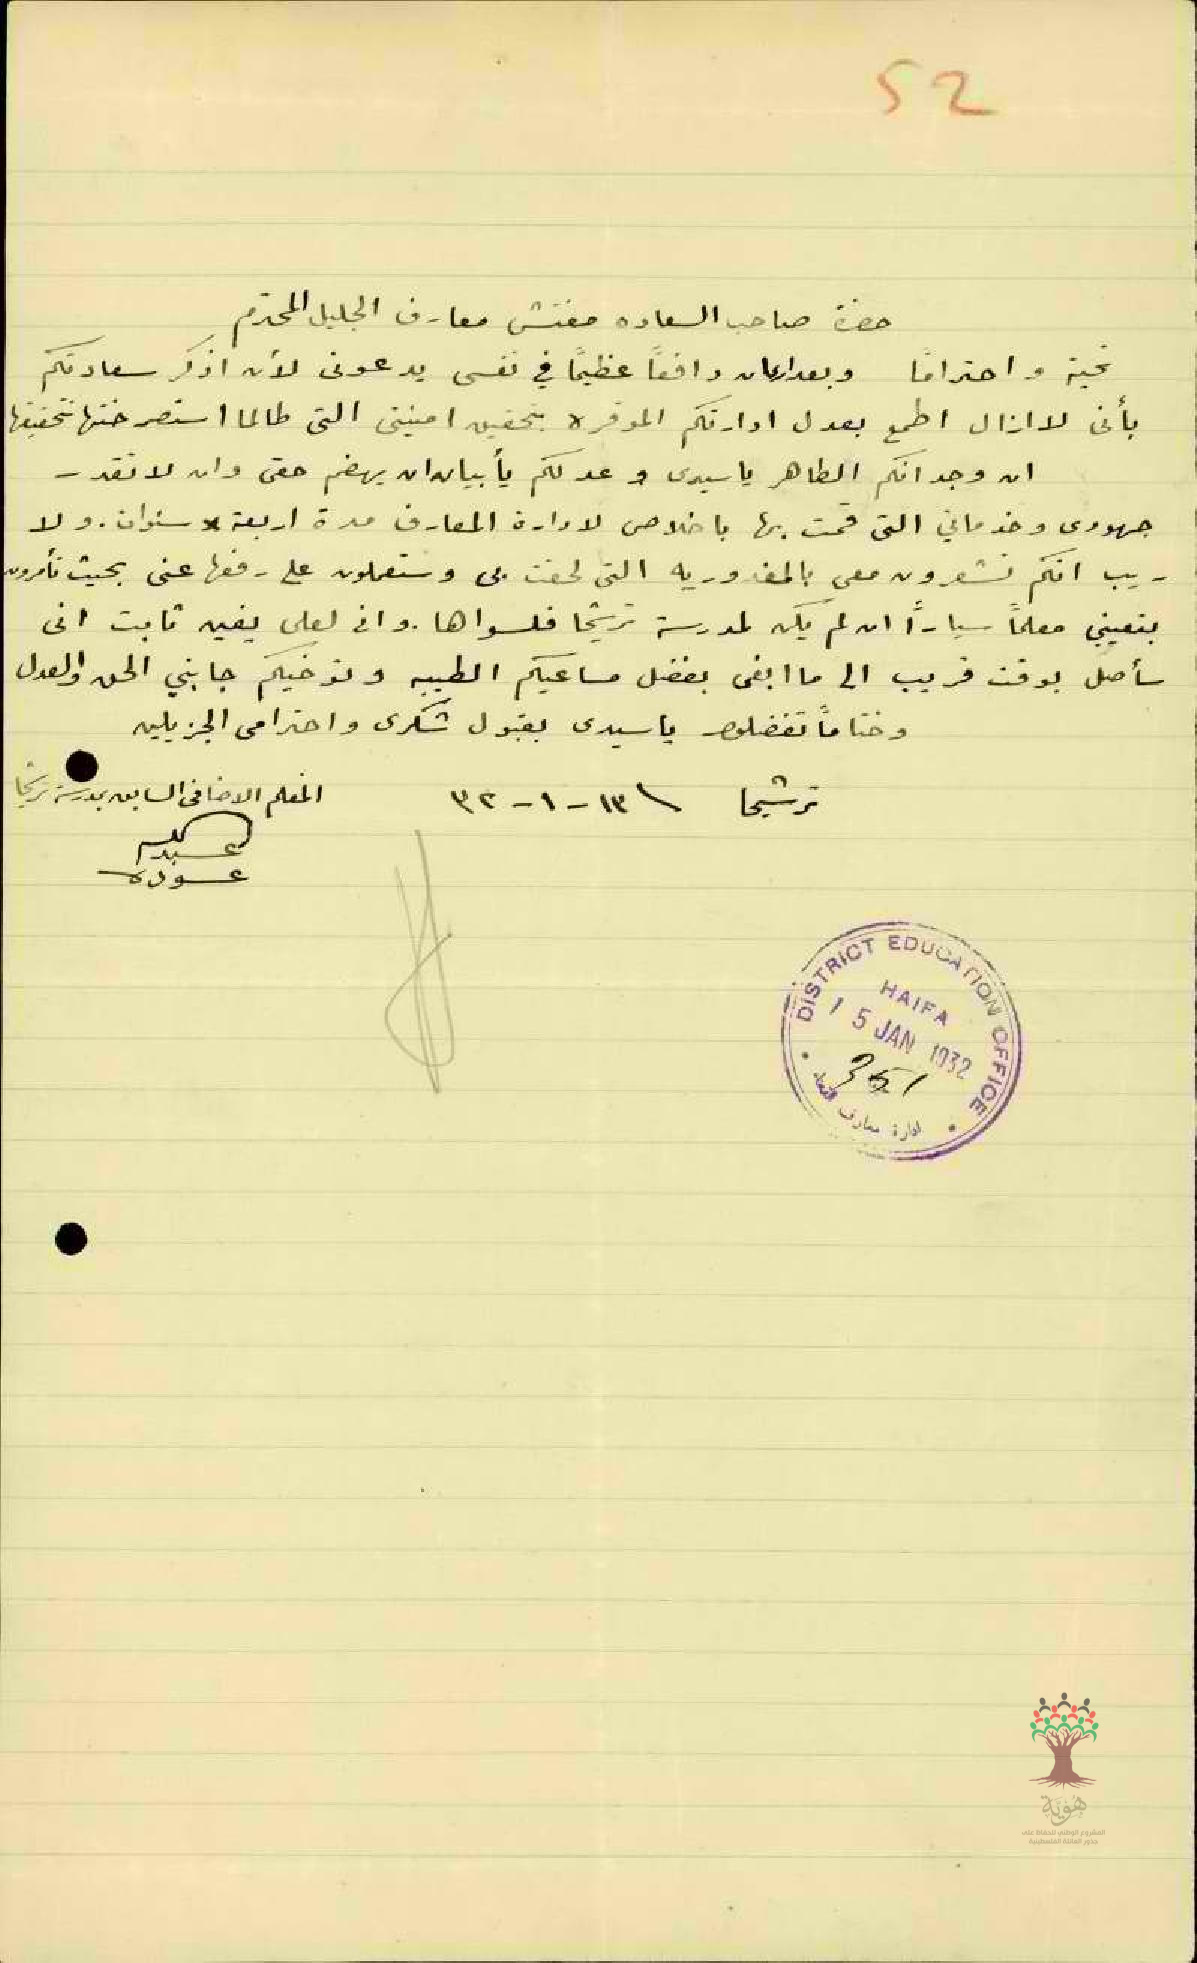 52
حضرة صاحب السعاده مفتش معارف الجليل المحترم
تحية و احتراماً وبعد ان دافعاً عظيماً في نفسي يدعوني لأن اذكر سعادتكم
بأني لا ازال اطمع بعدل ادارتكم الموقره بتحقيق امنيتي التي طالما استصرختها تحقيقها
ان وجدانكم الطاهر يا سيدي و عدلكم يأبيان ان يهضم حقي وان لا تقدر
جهودي وخدماتي التي قمت بها باخلاص لادارة المعارف مدة اربعة سنوات. ولا
ريب انكم تشعرون معي بالمغدوريه التي لحقت بي وستعملون على رفعها عني بحيث تأمرون
بتعييني معلماً سياراً ان لم يكن لمدرسة ترشيحا فلسواها. واني لعلى يقين ثابت اني
سأصل بوقت قريب الى ما ابغي بفضل مساعيكم الطيبه و توخيكم جانبي الحق والعدل
وختاماً تفضلوا يا سيدي بقبول شكري و احترامي الجزيلين
ترشيحا ١٣-١-٣٢ المعلم الاضافي السابق بمدرسة ترشيحا
عبدالله
عوده
DISTRICT EDUCATION OFFICE
HAIFA
15 JAN 1932
351
ادارة معارف
هُوِيَّة
المشروع الوطني للحفاظ على
جذور العائلة الفلسطينية